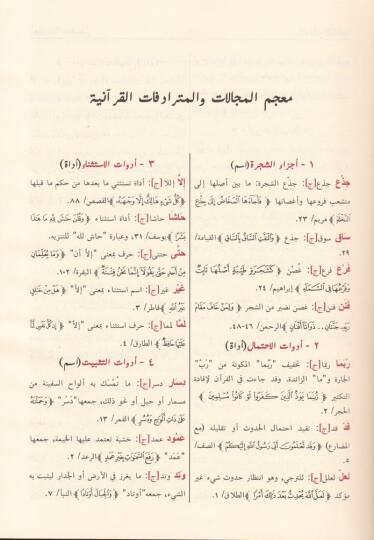 معجم المجالات والمترادفات القرآنية
١ - أجزاء الشجرة (اسم)
جِذْع جذع [ج]: جذْع الشجرة: ما بين أصلها إلى
متشعب فروعها وأغصانها ﴿فَأَجَاءَهَا الْمَخَاضُ إِلَى جِذْعِ
النَّخْلَةِ﴾ مريم/ ٢٣.
ساق سوق [ج]: ﴿وَالْتَفَّتِ السَّاقُ بِالسَّاقِ﴾ القيامة/
٢٩.
فَرْع فرع [ج]: غُصن ﴿كَشَجَرَةٍ طَيِّبَةٍ أَصْلُهَا ثَابِتٌ
وَفَرْعُهَا فِي السَّمَاءِ﴾ إبراهيم/ ٢٤.
فَنَن فنن [ج]: غصن نضير من الشجر ﴿وَلِمَنْ خَافَ مَقَامَ
رَبِّهِ جَنَّتَانِ.. ذَوَاتَا أَفْنَانٍ﴾ الرحمن/ ٤٦-٤٨.
٢ - أدوات الاحتمال (أداة)
رُبَمَا ربما [ج]: تخفيف "ربّما" المكونة من "رُبّ"
الجارة و"ما" الزائدة. وقد جاءت في القرآن لإفادة
التكثير ﴿رُبَمَا يَوَدُّ الَّذِينَ كَفَرُوا لَوْ كَانُوا مُسْلِمِينَ﴾
الحجر/ ٢.
قَدْ قد [ج]: تفيد احتمال الحدوث أو تقليله (مع
المضارع) ﴿وَقَد تَّعْلَمُونَ أَنِّي رَسُولُ اللَّهِ إِلَيْكُمْ﴾ الصف/
٥.
لَعَلّ لعلل [ج]: للترجي، وهو انتظار حدوث شيء غير
مؤكد ﴿لَعَلَّ اللَّهَ يُحْدِثُ بَعْدَ ذَلِكَ أَمْرًا﴾ الطلاق/ ١.
٣ - أدوات الاستثناء (أداة)
إلّا إللا [ج]: أداة تستثني ما بعدها من حكم ما قبلها
﴿كُلُّ شَيْءٍ هَالِكٌ إِلَّا وَجْهَهُ﴾ القصص/ ٨٨.
حَاشَا حاشا [ج]: أداة استثناء ﴿وَقُلْنَ حَاشَ لِلَّهِ مَا هَذَا
بَشَرًا﴾ يوسف/ ٣١، وعبارة "حاش لله" للتنزيه.
حتّى حتتى [ج]: حرف بمعنى "إلاّ أن" ﴿وَمَا يُعَلِّمَانِ
مِنْ أَحَدٍ حَتَّى يَقُولَا إِنَّمَا نَحْنُ فِتْنَةٌ﴾ البقرة/ ١٠٢.
غَيْر غير [ج]: اسم استثناء بمعنى "إلاّ" ﴿هَلْ مِنْ خَالِقٍ
غَيْرُ اللَّهِ﴾ فاطر/ ٣.
لَمّا لمما [ج]: حرف استثناء بمعنى "إلاّ" ﴿إِن كُلُّ نَفْسٍ لَّمَّا
عَلَيْهَا حَافِظٌ﴾ الطارق/ ٤.
٤ - أدوات التثبيت (اسم)
دِسار دسر [ج]: ما تُمْسَك به ألواح السفينة من
مسمار أو حبل أو نحو ذلك، جمعها "دُسُر" ﴿وَحَمَلْنَاهُ
عَلَى ذَاتِ أَلْوَاحٍ وَدُسُرٍ﴾ القمر/ ١٣.
عَمُود عمد [ج]: خشبة تعتمد عليها الخيمة، جمعها
"عَمَد" ﴿رَفَعَ السَّمَاوَاتِ بِغَيْرِ عَمَدٍ﴾ الرعد/ ٢.
وَتِد وتد [ج]: ما يغرز في الأرض أو الجدار ليثبت به
الشيء، جمعه "أوتاد" ﴿وَالْجِبَالَ أَوْتَادًا﴾ النبأ/ ٧.